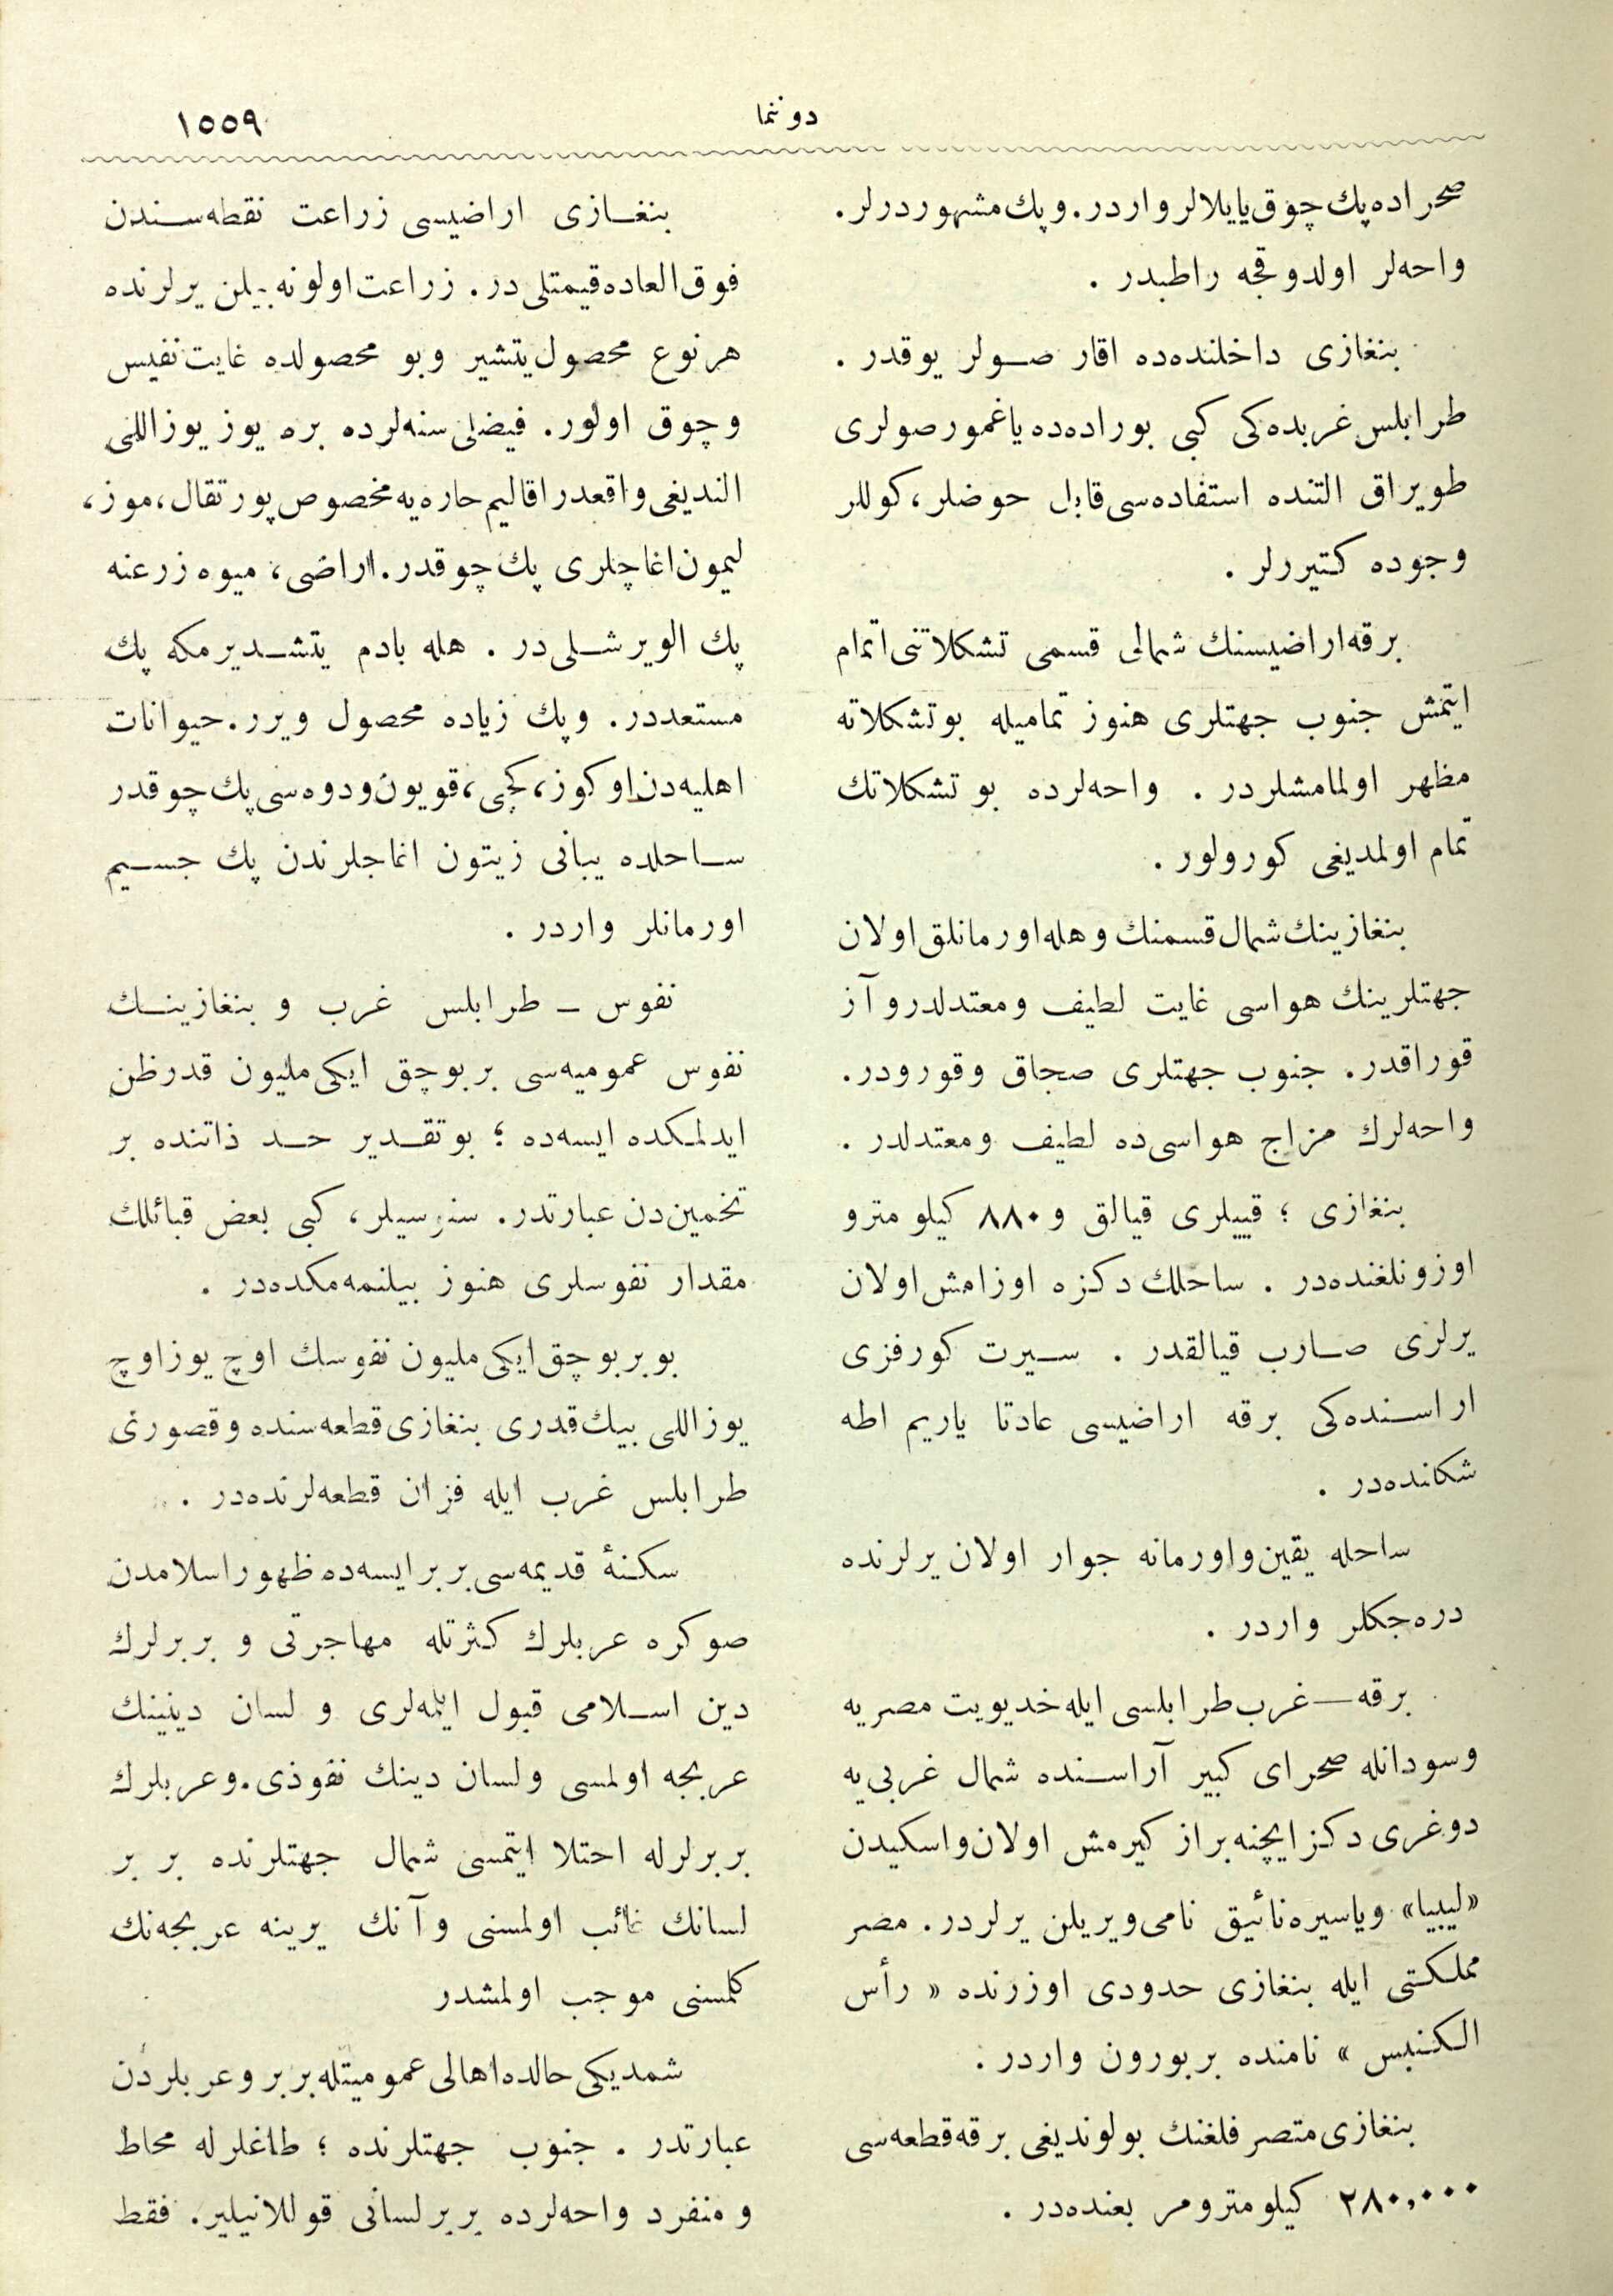 دوننما
١٥٥٩
صحراده پك چوق يايلالر واردر. و پك مشهوردرلر.
واحه‌لر اولدوقجه راطبدر .
بنغازى داخلنده‌ده اقار صولر يوقدر .
طرابلس غربده‌كى كبى بوراده‌ده ياغمور صولرى
طوپراق التنده استفاده‌سى قابل حوضلر، كوللر
وجوده كتيررلر .
برقه اراضيسنك شمالى قسمى تشكلاتنى اتمام
ايتمش جنوب جهتلرى هنوز تماميله بو تشكلاته
مظهر اولمامشلردر . واحه‌لرده بو تشكلاتك
تمام اولمديغى كورولور .
بنغازينك شمال قسمنك و هله اورمانلق اولان
جهتلرينك هواسى غايت لطيف و معتدلدر و آز
قوراقدر. جنوب جهتلرى صجاق و قورودر.
واحه‌لرك مزاج هواسى‌ده لطيف و معتدلدر .
بنغازى ؛ قييلرى قيالق و ٨٨٠ كيلو مترو
اوزونلغنده‌در . ساحلك دكزه اوزامش اولان
يرلرى صارب قيالقدر . سيرت كورفزى
اراسنده‌كى برقه اراضيسى عادتا ياريم اطه
شكلنده‌در .
ساحله يقين و اورمانه جوار اولان يرلرنده
دره‌جكلر واردر .
برقه — غرب طرابلسى ايله خديويت مصريه
و سودانله صحراى كبير آراسنده شمال غربى‌يه
دوغرى دكز ايچنه براز كيرمش اولان و اسكيدن
«ليبيا» و ياسيره نائيق نامى ويريلن يرلردر. مصر
مملكتى ايله بنغازى حدودى اوزرنده « رأس
الكنبس » نامنده بر بورون واردر .
بنغازى متصرفلغنك بولونديغى برقه قطعه‌سى
٢٨٠,٠٠٠ كيلو مترو مر بعنده‌در .
بنغازى اراضيسى زراعت نقطه‌سندن
فوق العاده قيمتلى در. زراعت اولونه بيلن يرلرنده
هر نوع محصول يتشير و بو محصولده غايت نفيس
و چوق اولور. فيضلى سنه‌لرده بره يوز يوز اللى
الديغى واقعدر اقاليم حاره‌يه مخصوص پورتقال، موز،
ليمون اغاچلرى پك چوقدر. اراضى، ميوه زرعنه
پك الويرشلى در . هله بادم يتشديرمكه پك
مستعددر. و پك زياده محصول ويرر. حيوانات
اهليه‌دن اوكوز، كچى، قويون و دوه‌سى پك چوقدر
ساحلده يبانى زيتون اغاجلرندن پك جسيم
اورمانلر واردر .
نفوس ــ طرابلس غرب و بنغازينك
نفوس عموميه‌سى بر بوچق ايكى مليون قدر ظن
ايدلمكده ايسه‌ده ؛ بو تقدير حد ذاتنده بر
تخمين‌دن عبارتدر. سنوسيلر، كبى بعض قبائلك
مقدار نفوسلرى هنوز بيلنمه‌مكده‌در .
بو بر بوچق ايكى مليون نفوسك اوچ يوز اوچ
يوز اللى بيك قدرى بنغازى قطعه‌سنده و قصورى
طرابلس غرب ايله فزان قطعه‌لرنده‌در .
سكنهٔ قديمه‌سى بربر ايسه‌ده ظهور اسلامدن
صوكره عربلرك كثرتله مهاجرتى و بربرلرك
دين اسلامى قبول ايله‌لرى و لسان دينينك
عربجه اولمسى و لسان دينك نفوذى. و عربلرك
بربرلرله احتلا ايتمسى شمال جهتلرنده بر بر
لسانك غائب اولمسنى و آنك يرينه عربجه‌نك
كلمسنى موجب اولمشدر
شمديكى حالده اهالى عموميتله بربر و عربلردن
عبارتدر . جنوب جهتلرنده ؛ طاغلرله محاط
و منفرد واحه‌لرده بربر لسانى قوللانيلير. فقط